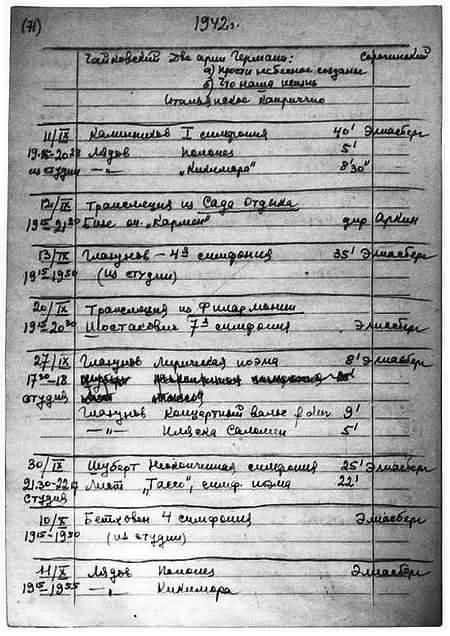 (71) 1942г.
Чайковский Две арии Германа: Сорочинский
а) Прости небесное созданье
б) Что наша жизнь
Итальянское Каприччио
11/IX Калинников I симфония 40' Элиасберг
Лядов Полонез 5'
из студии —"— „Кикимора" 8'30"
12/IX Трансляция из Сада Отдыха
Бизе оп. „Кармен" дир Аркин
13/IX Глазунов – 4я симфония 35' Элиасберг
19¹⁵–19⁵⁰ (из студии)
20/IX Трансляция из Филармонии
Шостакович 7я симфония Элиасберг
27/IX Глазунов Лирическая поэма 8' Элиасберг
17³⁰–18 Шуберт
студия
Глазунов Концертный вальс 9'
—"— Пляска Саломеи 5'
30/IX Шуберт Неоконченная симфония 25' Элиасберг
Лист „Тассо", симф. поэма 22'
студия
10/X Бетховен 4 симфония Элиасберг
19¹⁵–19⁵⁰ (из студии)
11/X Лядов Полонез Элиасберг
19¹⁵–19⁵⁵ —"— Кикимора